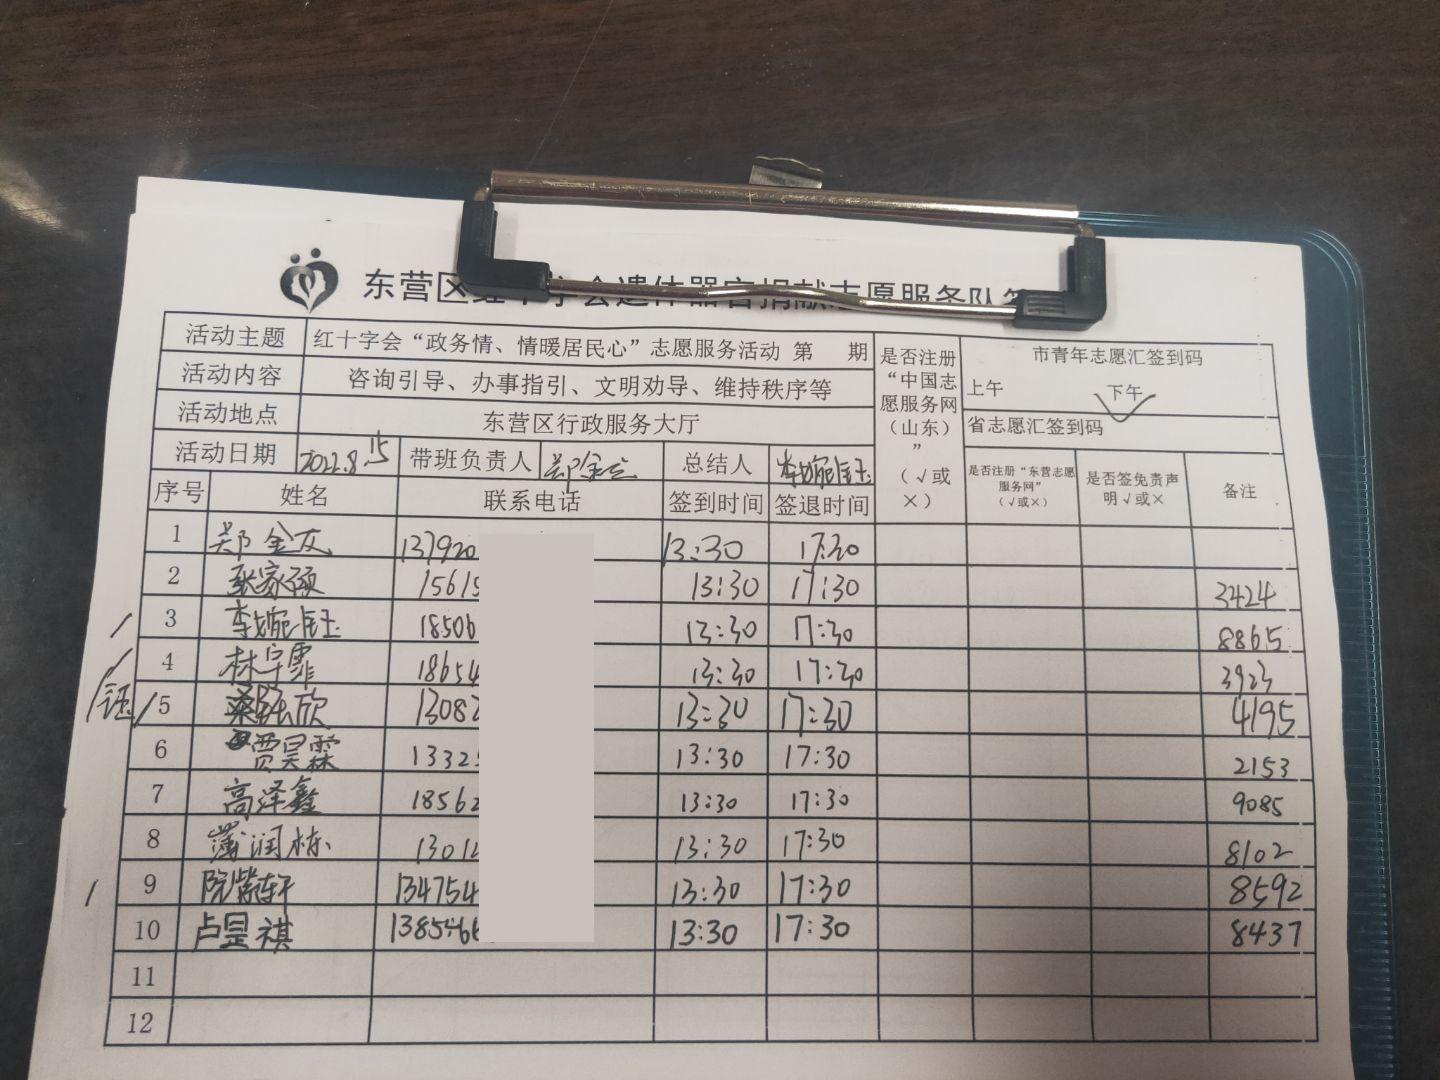 东营区红十字会遗体器官捐献志愿服务队签
活动主题 红十字会“政务情、情暖居民心”志愿服务活动 第 期 是否注册“中国志愿服务网（山东）”（√或×） 市青年志愿汇签到码
活动内容 咨询引导、办事指引、文明劝导、维持秩序等 上午 下午 √
活动地点 东营区行政服务大厅 省志愿汇签到码
活动日期 2022.8.15 带班负责人 郑金 总结人 李婉钰 是否注册“东营志愿服务网”（√或×） 是否签免责声明√或× 备注
序号 姓名 联系电话 签到时间 签退时间
1 郑金 137920 13:30 17:30
2 张家硕 15615 13:30 17:30 3424
3 李婉钰 18506 13:30 17:30 8865
4 林宇霏 18654 13:30 17:30 3923
钰 5 欣 13082 13:30 17:30 4195
6 贾昊霖 1332 13:30 17:30 2153
7 高泽鑫 18562 13:30 17:30 9085
8 薄润栋 1301 13:30 17:30 8102
9 阮紫轩 134754 13:30 17:30 8592
10 卢昱祺 138546 13:30 17:30 8437
11
12